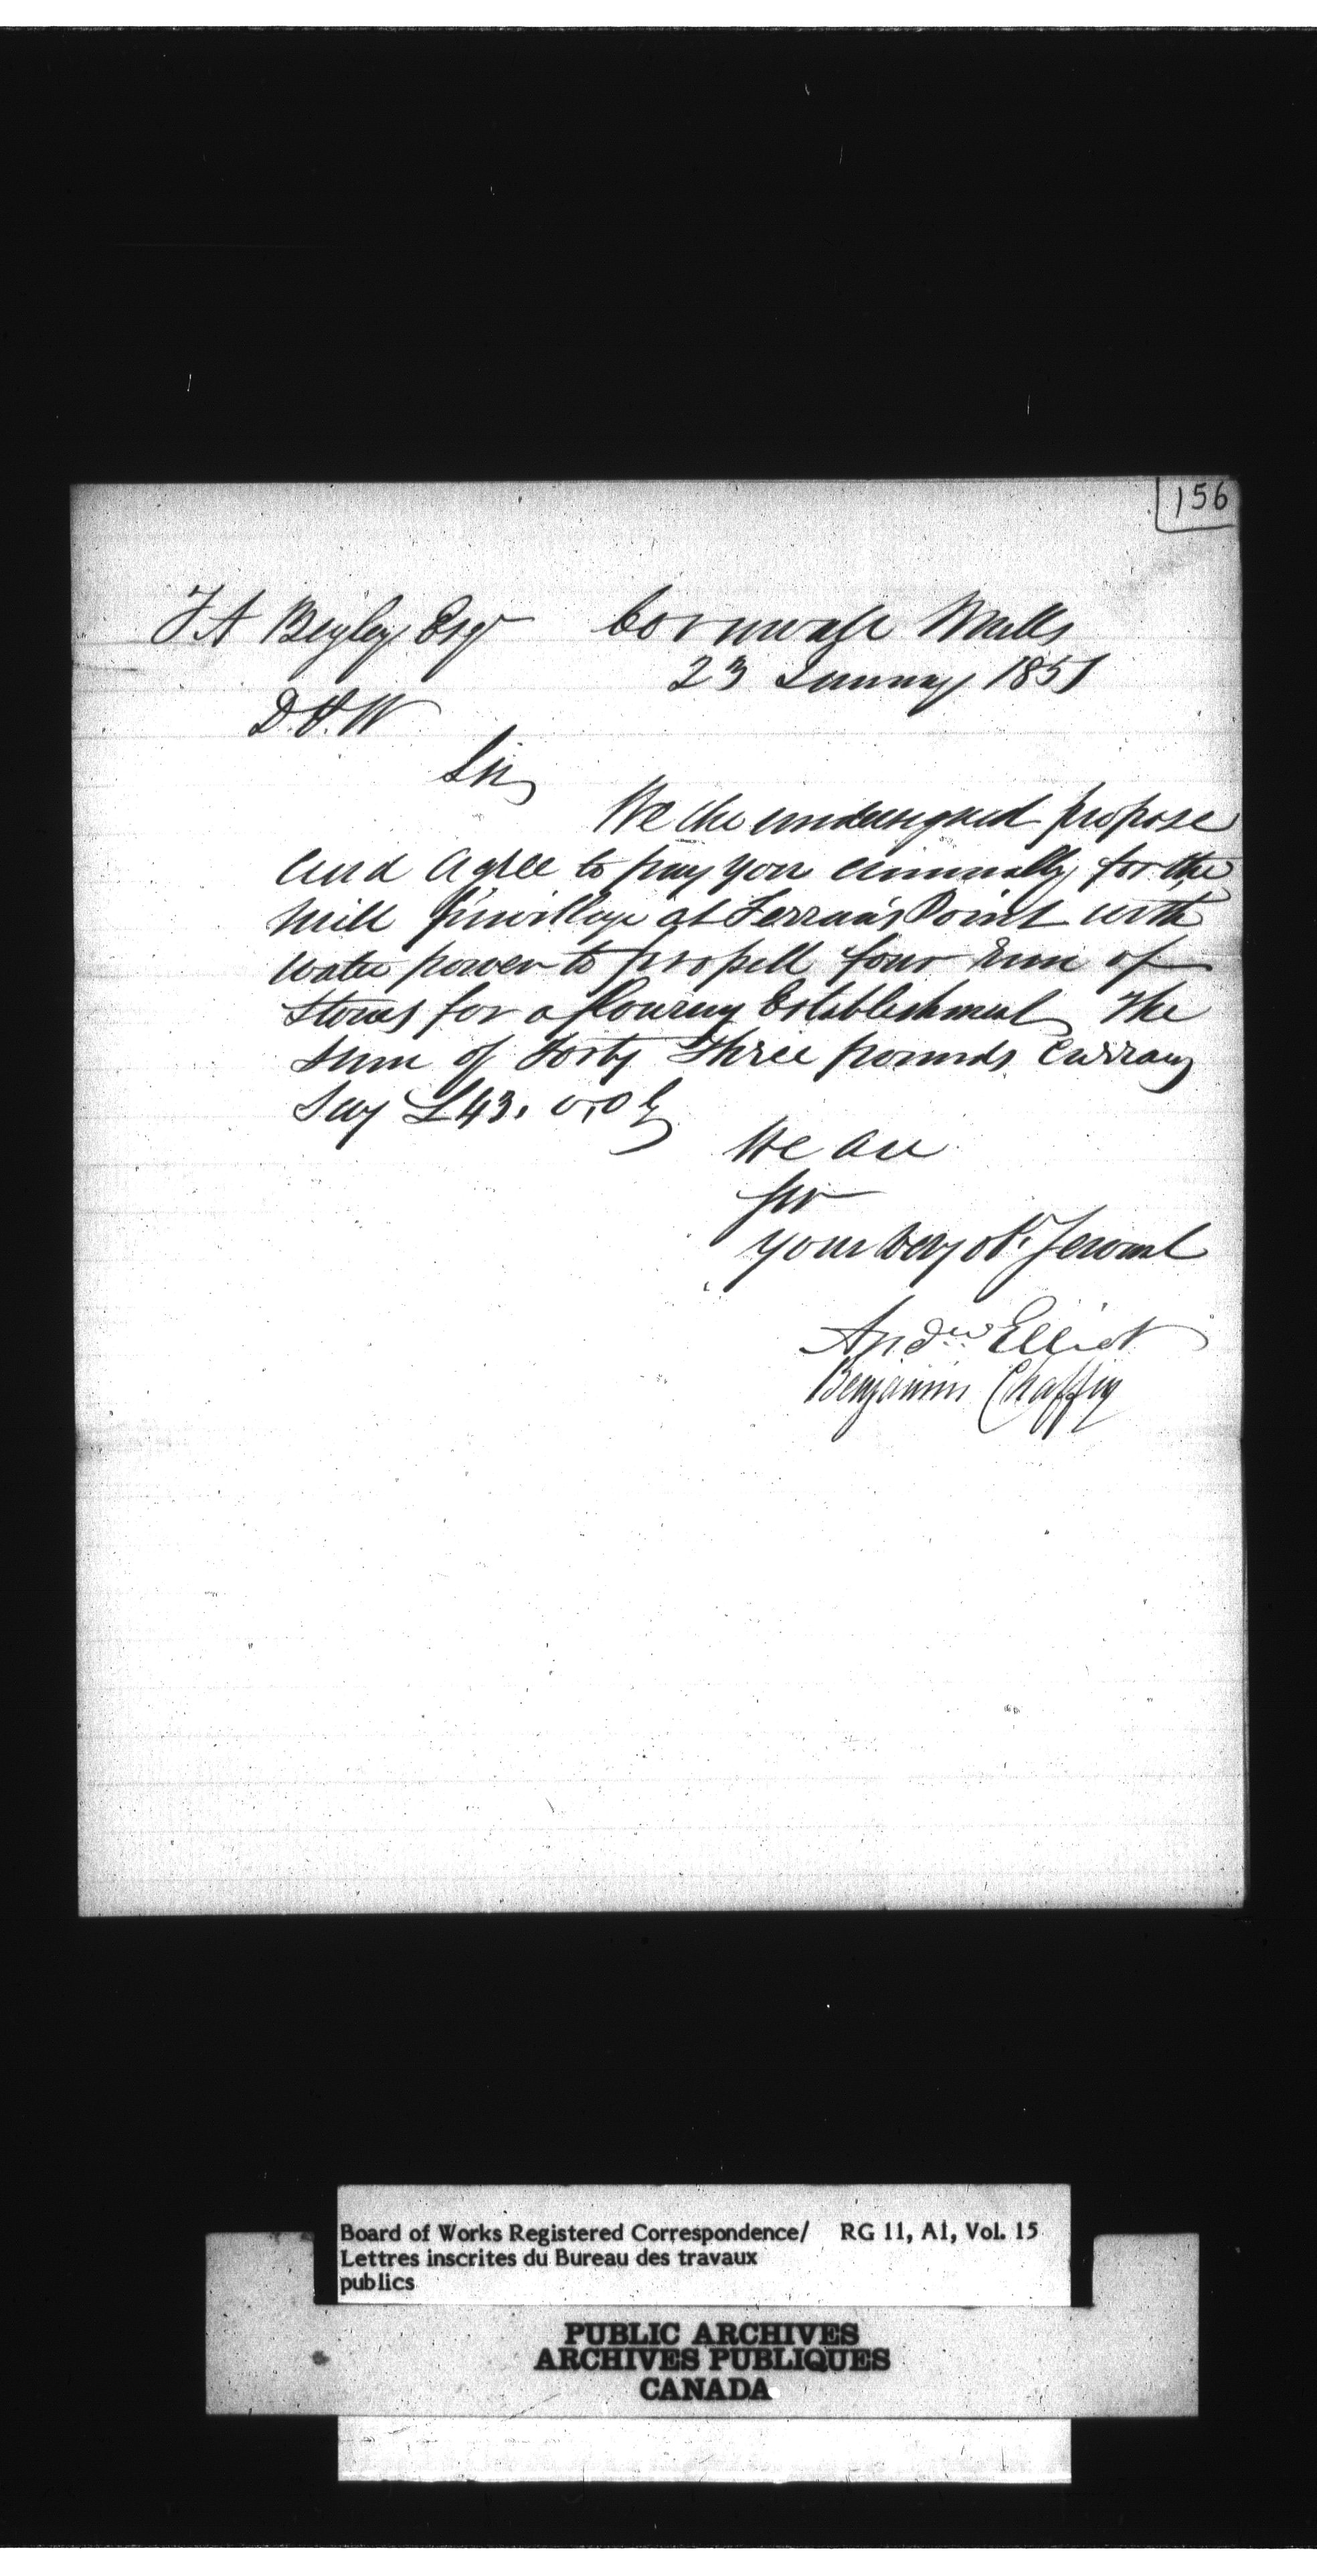 156
T A Begley Esqr Cornwall Mills
23 January 1851
D.P.W
Sir
We the undersigned propose
and agree to pay you annually for the
Mill privillage at Farran's Point with
water power to propell four run of
stones for a flouring Establishment the
sum of Forty Three pounds Currany
Say £43. 0.0
We are
Sir
your very obt. Servant
Andw Elliot
Benjamin Chaffey
Board of Works Registered Correspondence/ RG 11, A1, Vol. 15
Lettres inscrites du Bureau des travaux
publics
PUBLIC ARCHIVES
ARCHIVES PUBLIQUES
CANADA